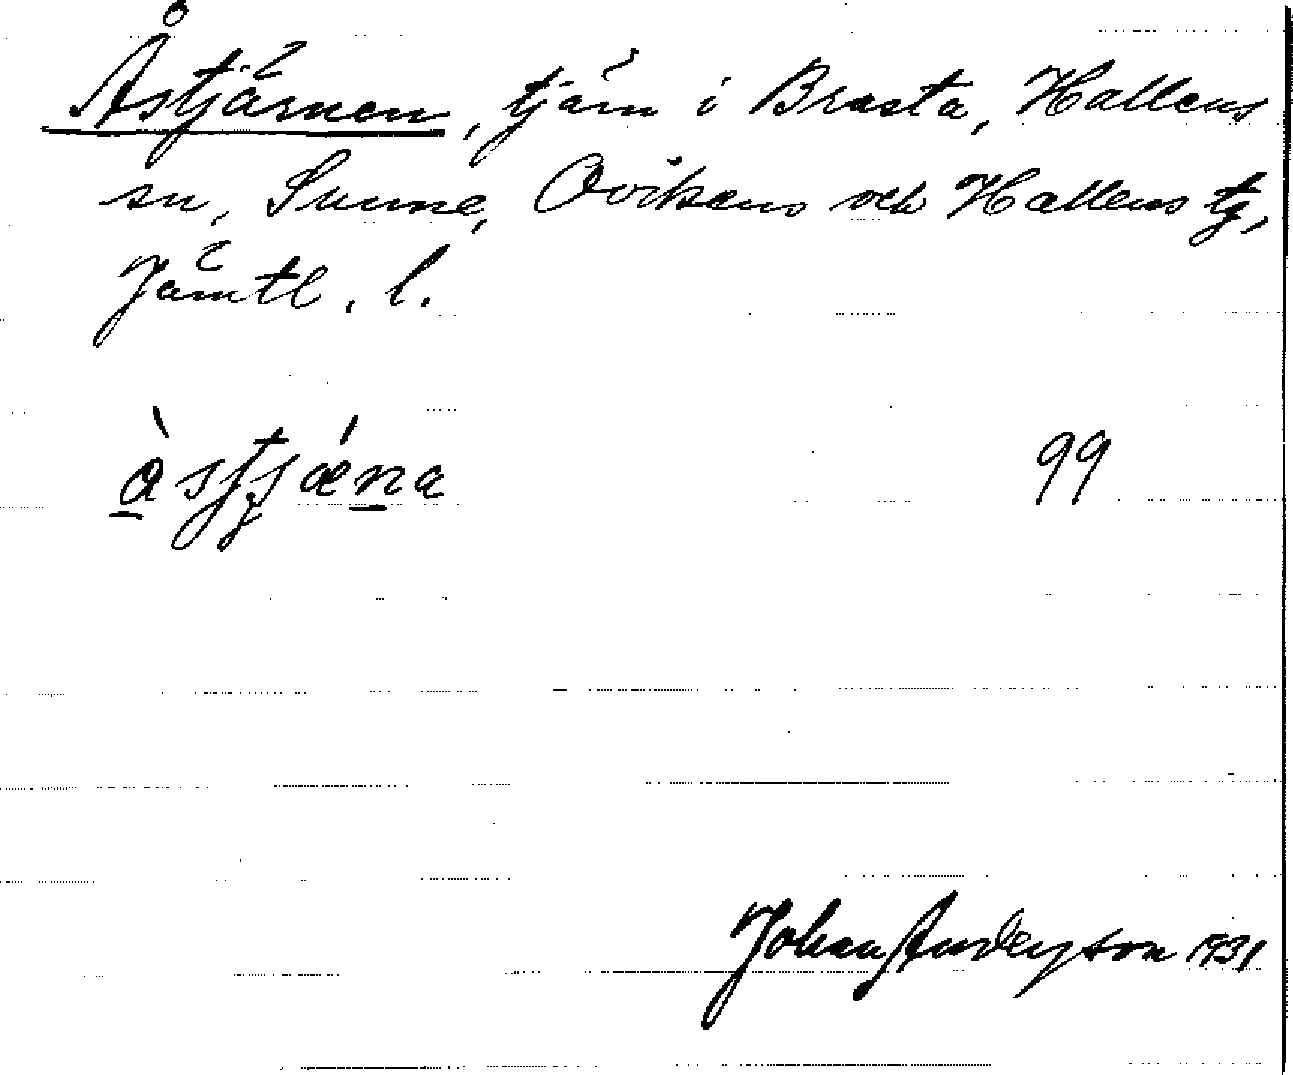 Åstjärnen, tjärn i Brasta, Hallens
sn, Sunne, Ovikens och Hallens tg,
Jämtl. l.
99
Johan Anderson 1931